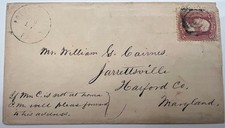 Mr. William G. Cairnes,
Jarrettsville
Harford Co.
Maryland.
If Mr. C. is not at home
P.M. will please forward
to his address.